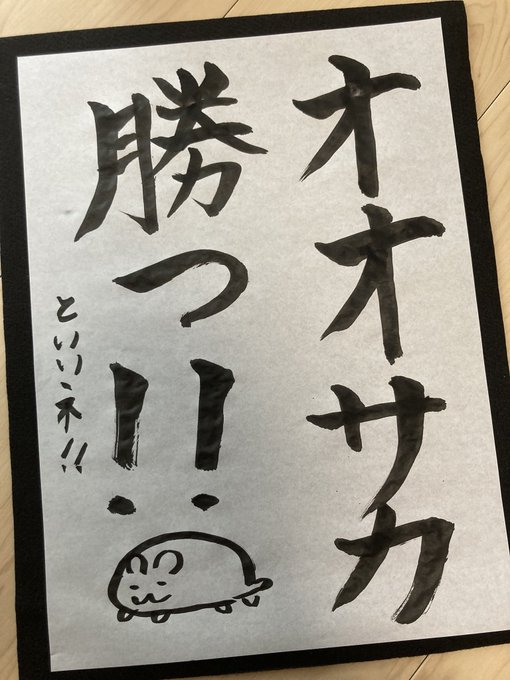 オオサカ
勝つ!!
といいネ!!